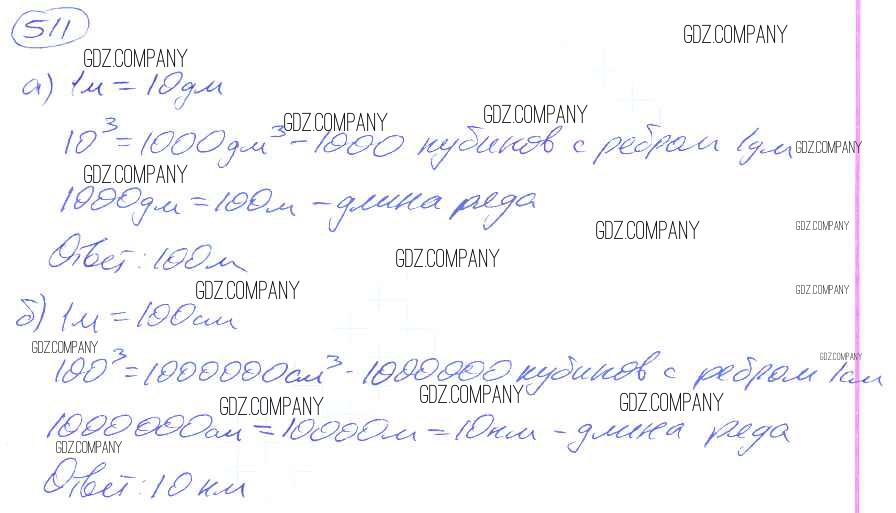 511
GDZ.COMPANY
GDZ.COMPANY
а) 1м = 10дм
GDZ.COMPANY
GDZ.COMPANY
10³ = 1000дм³ - 1000 кубиков с ребром 1дм
GDZ.COMPANY
GDZ.COMPANY
1000дм = 100м - длина ряда
GDZ.COMPANY
GDZ.COMPANY
Ответ: 100м
GDZ.COMPANY
GDZ.COMPANY
GDZ.COMPANY
б) 1м = 100см
GDZ.COMPANY
GDZ.COMPANY
100³ = 1000000см³ - 1000000 кубиков с ребром 1см
GDZ.COMPANY
GDZ.COMPANY
GDZ.COMPANY
1000000см = 10000м = 10км - длина ряда
GDZ.COMPANY
Ответ: 10 км